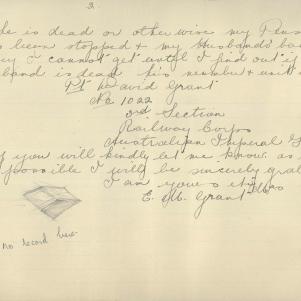 3
he is dead or otherwise my Pens
s been stopped & my husbands ba
ey I cannot get until I find out if
band is dead his number & unit
Pte David Grant
No 1022
3rd Section
Railway Corps
Australian Imperal
f you will kindly let me know as
possible I will be sincerely grat
I am yours etc
E. M. Grant Mrs
no record here